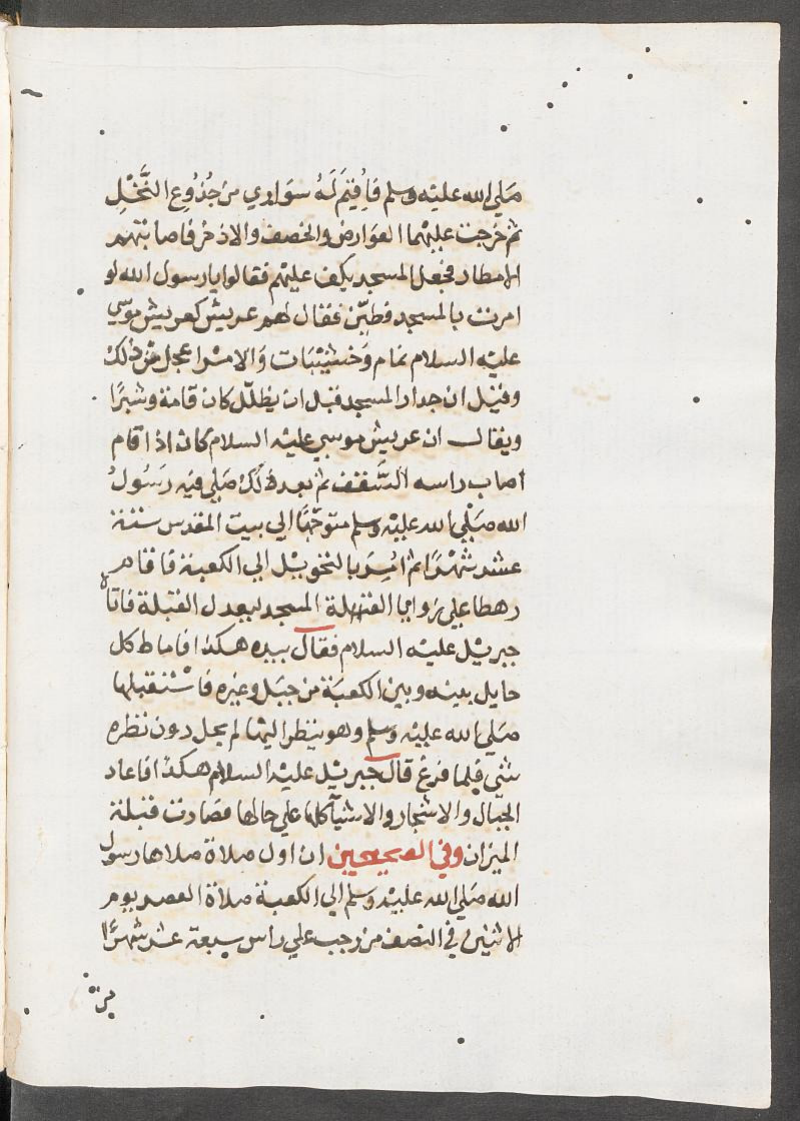 صلي الله عليه وسلم فاُقيَم لَهُ سَواري من جُذُوع النَّخْلِ
ثم خرجت عليهما العَوارض والخصف والاذخر فاصابتهم
الامطار فجعل المسجد يكف عليهم فقالوا يا رسول الله لو
امرت بالمسجد فطيّن فقال لهم عريش كعريش موسي
عليه السلام تمام وَخشَيْبَات وَالامْر اعجل من ذلك
وقيل ان جدار المسجد قبل ان يظلّل كان قامة وشبرًا
ويقال ان عريش موسي عليه السلام كان اذا قام
اصاب راسه السَّقف ثم بعد ذَلك صَلي فيه رسَوُلُ
الله صَلي الله عليْه وسلم متوجّهًا الي بيت المقدس ستة
عشر شهْرًا ثم اُمِرَ بالتحويل الي الكعبة فاقام
رهطا علي زوايا المسجد ليعدل القبلة فاتاه
جبريل عليه السلام فقال بيده هكذا فاماط كل
حايل بينه وبين الكعبَة من جبَل وغيره فاسْتقبلها
صَلي الله عليْه وسلم وهو ينظر اليها لم يحل دون نظره
شي فلما فرغ قال جبريل عليه السلام هكذا فاعاد
الجبال والاشجار والاشيآ كلها علي حالها فصَارت قبلة
الميزان وفي الصحيحين ان اول صلاة صلاها رسول
الله صَلي الله عليْه وسلم الي الكعبة صلاة العصر يوم
الاثنين في النصف من رجب علي راس سبعة عشر شهرًا